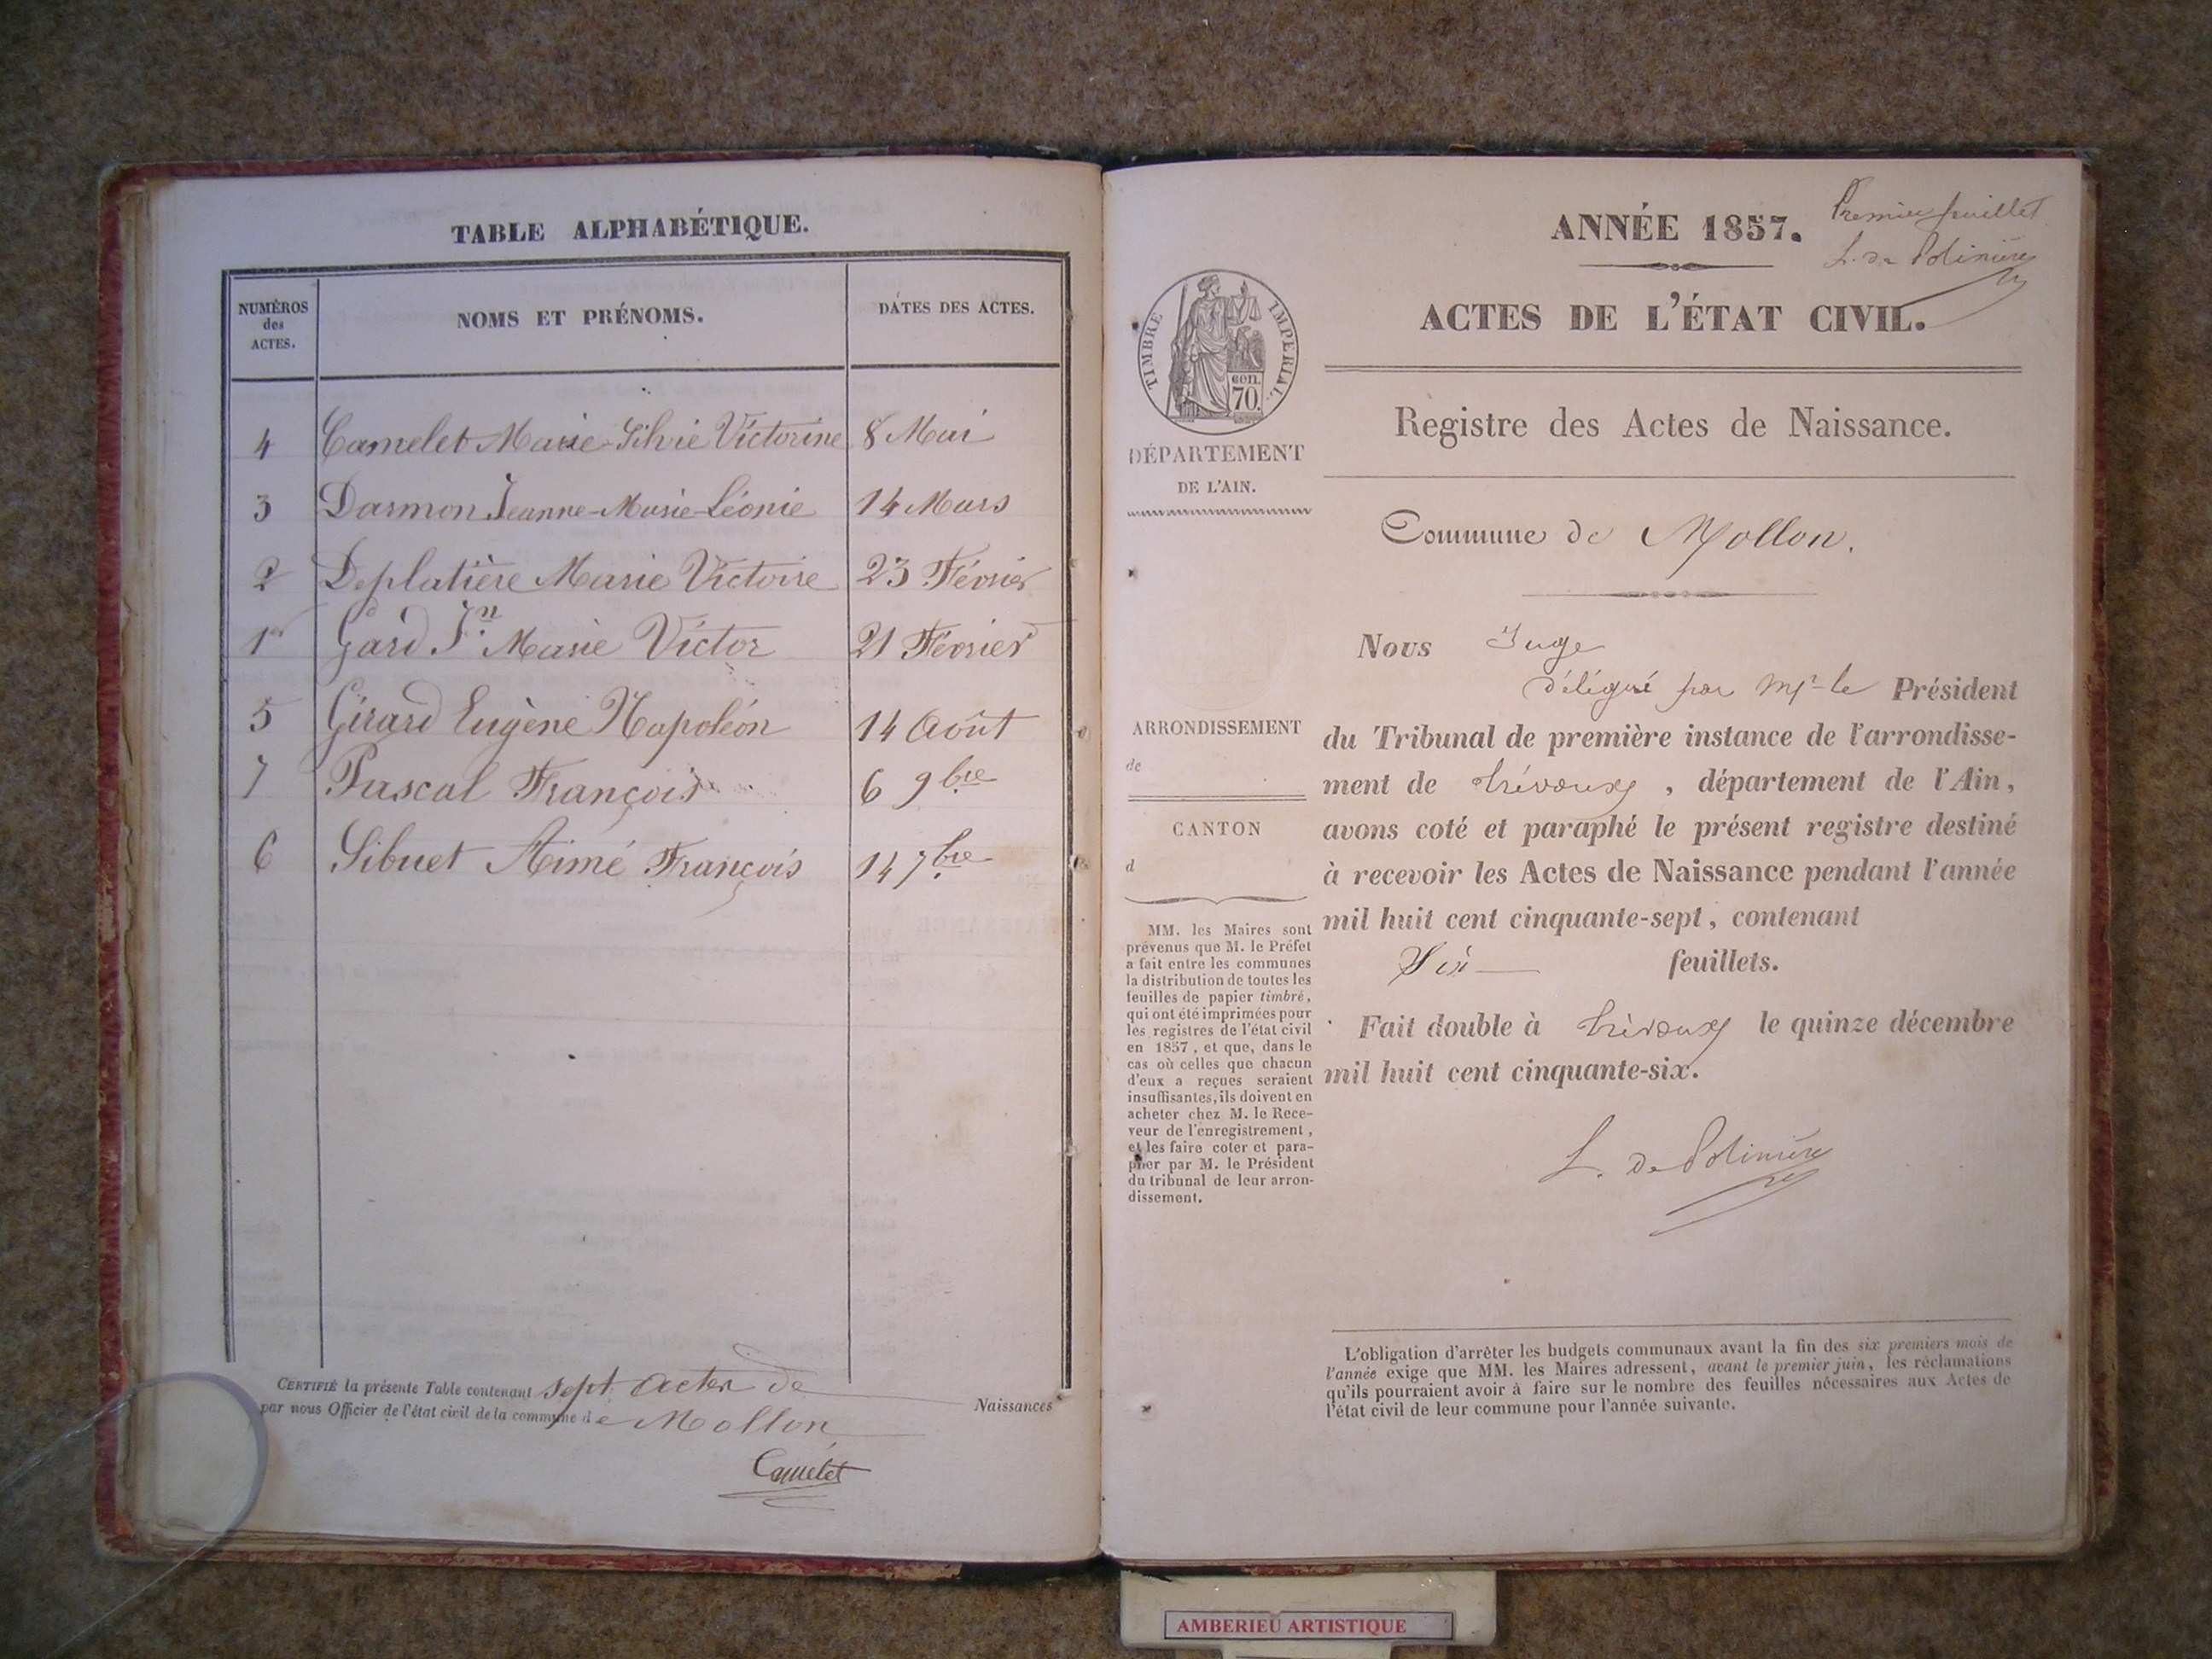 TABLE ALPHABÉTIQUE.
NUMÉROS des ACTES. NOMS ET PRÉNOMS. DATES DES ACTES.
4 Camelet Marie-Silvie Victorine 8 Mai
3 Darmon Jeanne-Marie-Léonie 14 Mars
2 Deplatière Marie Victoire 23 Février
1er Gard Jn Marie Victor 21 Février
5 Girard Eugène Napoléon 14 Août
7 Pascal François 6 9bre
6 Sibuet Aimé François 14 7bre
CERTIFIÉ la présente Table contenant sept actes de Naissances
par nous Officier de l'état civil de la commune de Mollon
Camelet
Premier feuillet
L. de Polinière
ANNÉE 1857.
ACTES DE L'ÉTAT CIVIL.
TIMBRE IMPERIAL.
cen.
70.
DÉPARTEMENT
DE L'AIN.
Registre des Actes de Naissance.
Commune de Mollon.
ARRONDISSEMENT
de
CANTON
d
MM. les Maires sont
prévenus que M. le Préfet
a fait entre les communes
la distribution de toutes les
feuilles de papier timbré,
qui ont été imprimées pour
les registres de l'état civil
en 1857, et que, dans le
cas où celles que chacun
d'eux a reçues seraient
insuffisantes, ils doivent en
acheter chez M. le Rece-
veur de l'enregistrement,
et les faire coter et para-
pher par M. le Président
du tribunal de leur arron-
dissement.
Nous Juge
délégué par Mr le Président
du Tribunal de première instance de l'arrondisse-
ment de Trévoux, département de l'Ain,
avons coté et paraphé le présent registre destiné
à recevoir les Actes de Naissance pendant l'année
mil huit cent cinquante-sept, contenant
Six feuillets.
Fait double à Trévoux le quinze décembre
mil huit cent cinquante-six.
L. de Polinière
L'obligation d'arrêter les budgets communaux avant la fin des six premiers mois de
l'année exige que MM. les Maires adressent, avant le premier juin, les réclamations
qu'ils pourraient avoir à faire sur le nombre des feuilles nécessaires aux Actes de
l'état civil de leur commune pour l'année suivante.
AMBERIEU ARTISTIQUE